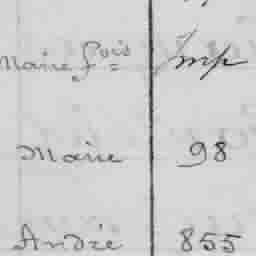 Marie f^ois = Imp
Marie 98
André 855